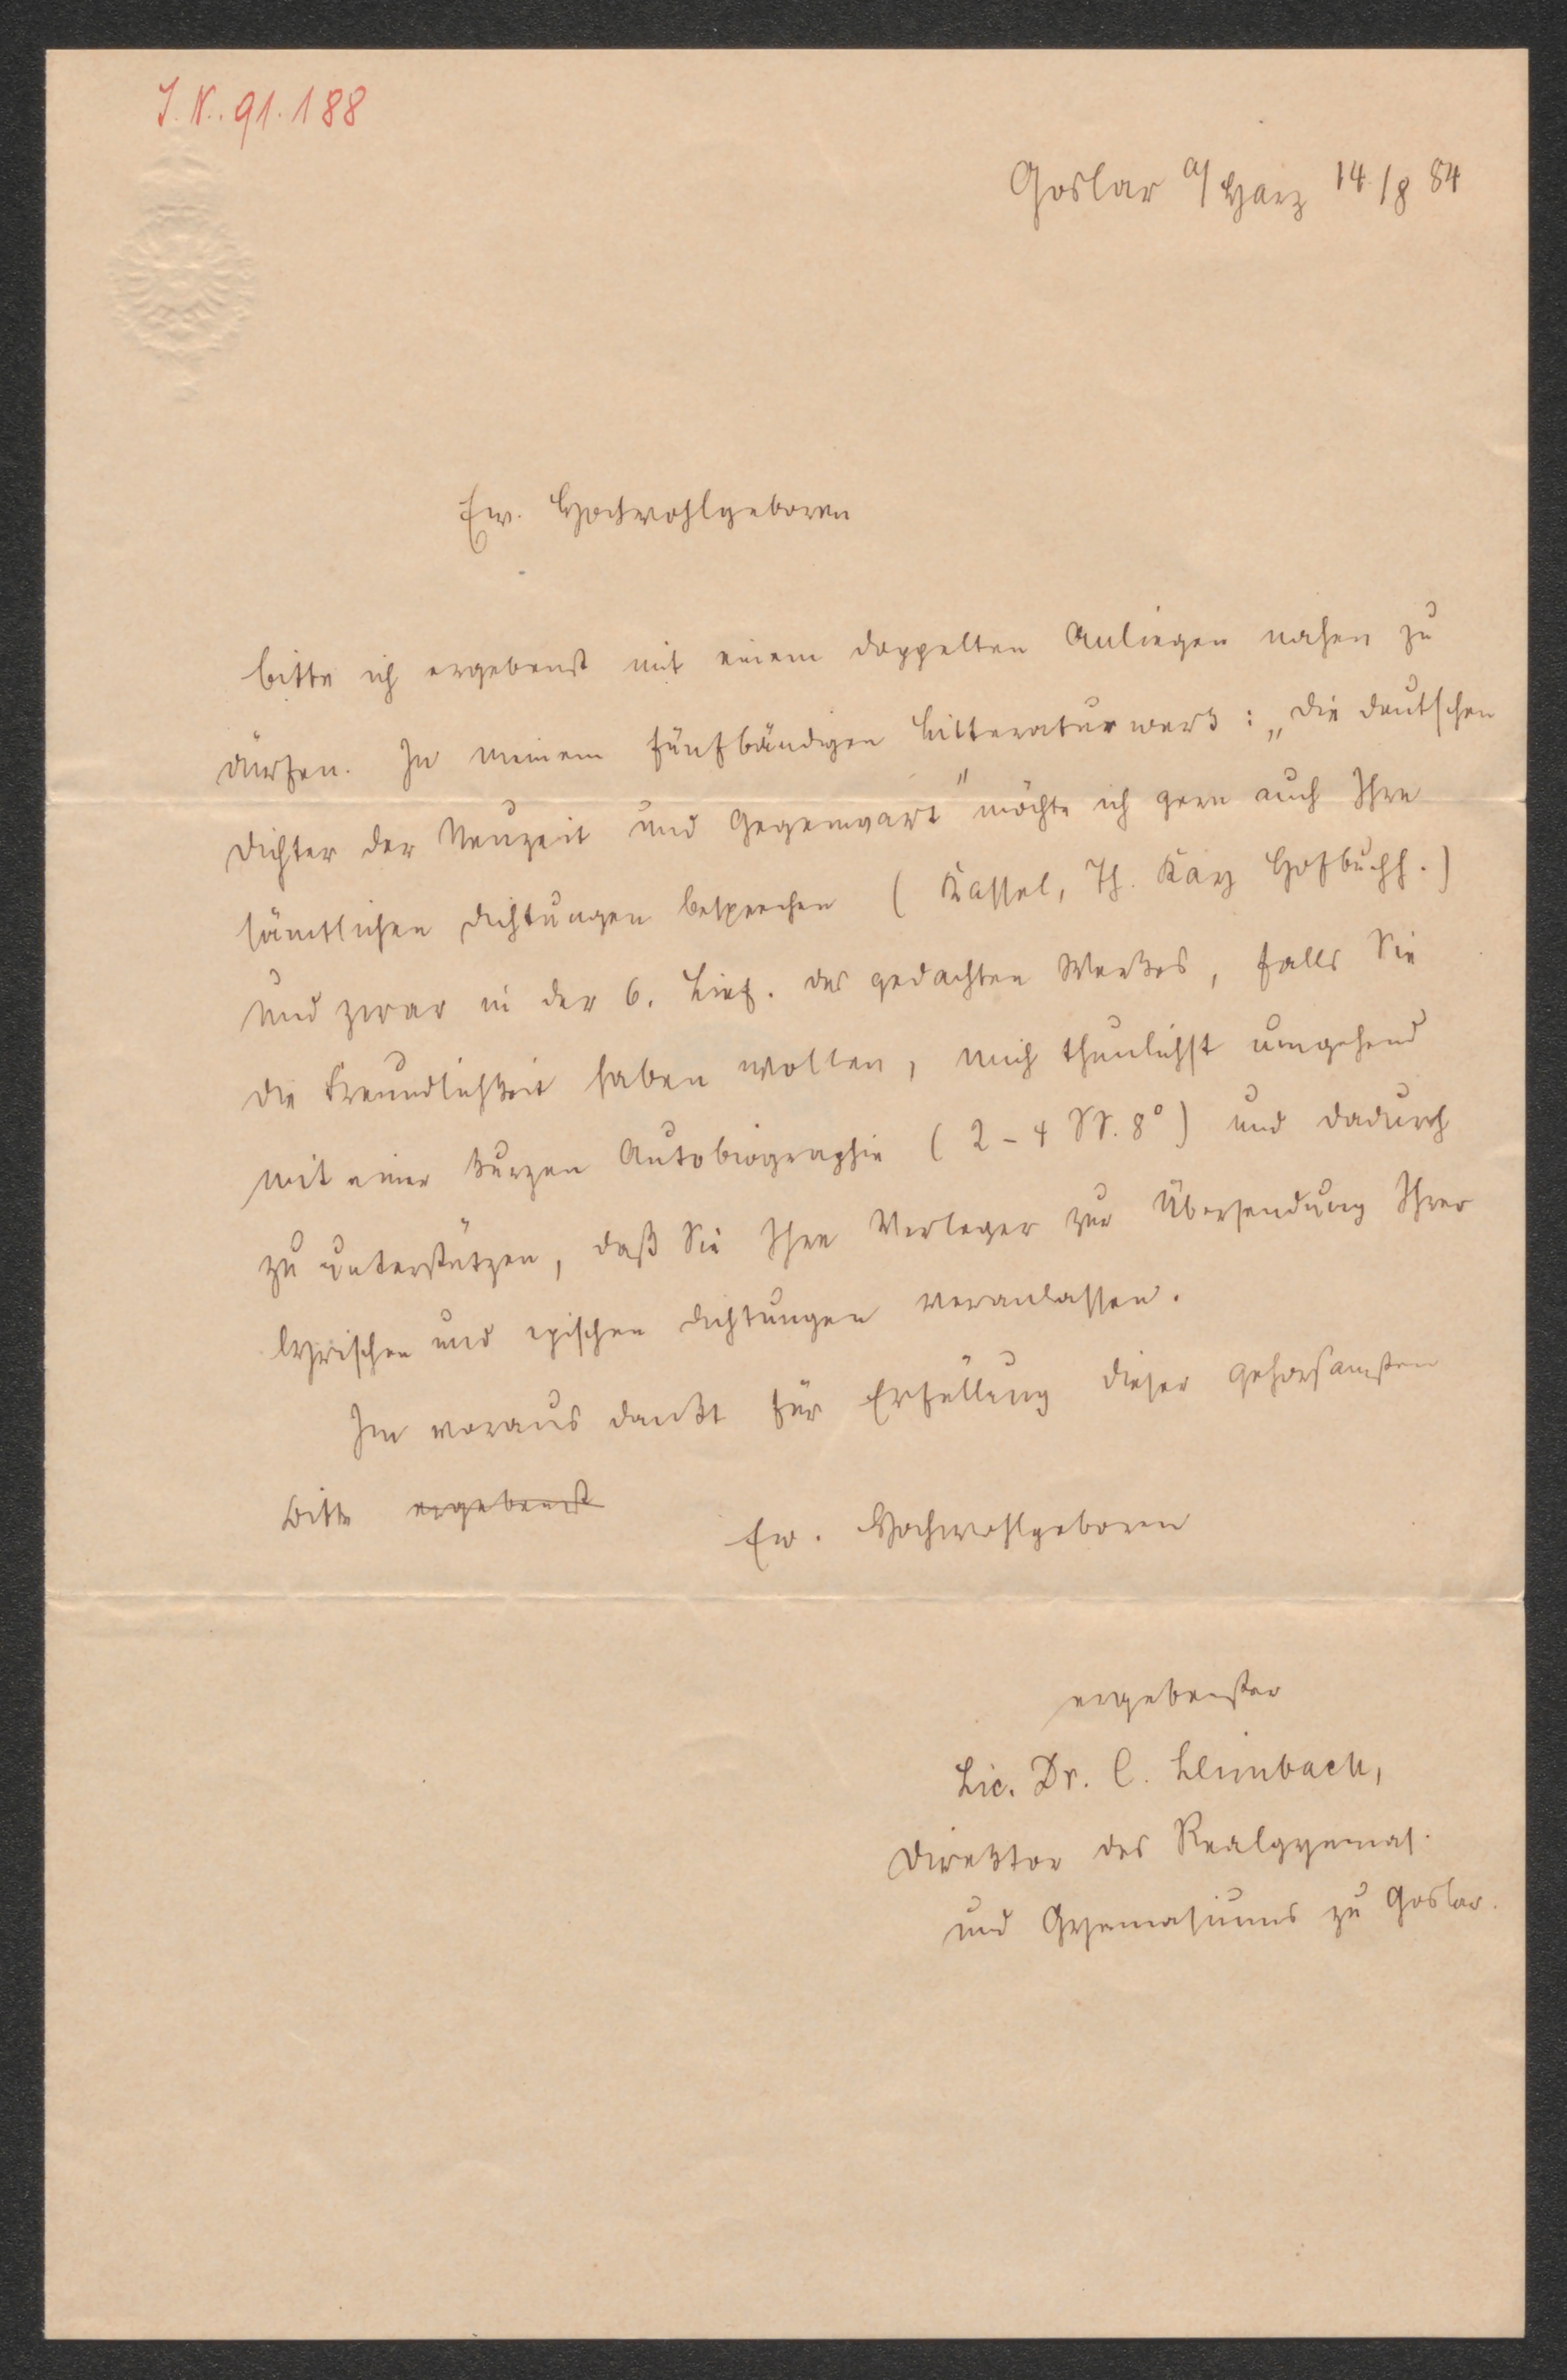 J.N. 91.188
Goslar a/Harz 14./8 84
Ew. Hochwohlgeboren
bitte ich ergebenst mit einem doppelten Anliegen nahen zu
dürfen. In meinem fünfbändigen Litteraturwerk: „Die deutschen
Dichter der Neuzeit und Gegenwart" möchte ich gern auch Ihre
sämtlichen Dichtungen besprechen (Kassel, Th. Kay Hofbuchh.)
und zwar in der 6. Lief. des gedachten Werkes, falls Sie
die Freundlichkeit haben wollen, mich thunlichst umgehend
mit einer kurzen Autobiographie (2-4 SS. 8°) und dadurch
zu unterstützen, daß Sie Ihre Verleger zur Übersendung Ihrer
lyrischen und epischen Dichtungen veranlassen.
Im voraus dankt für Erfüllung dieser gehorsamsten
Bitte ergebenst
Ew. Hochwohlgeboren
ergebenster
Lic. Dr. C. Leimbach,
Direktor des Realgymnas.
und Gymnasiums zu Goslar.